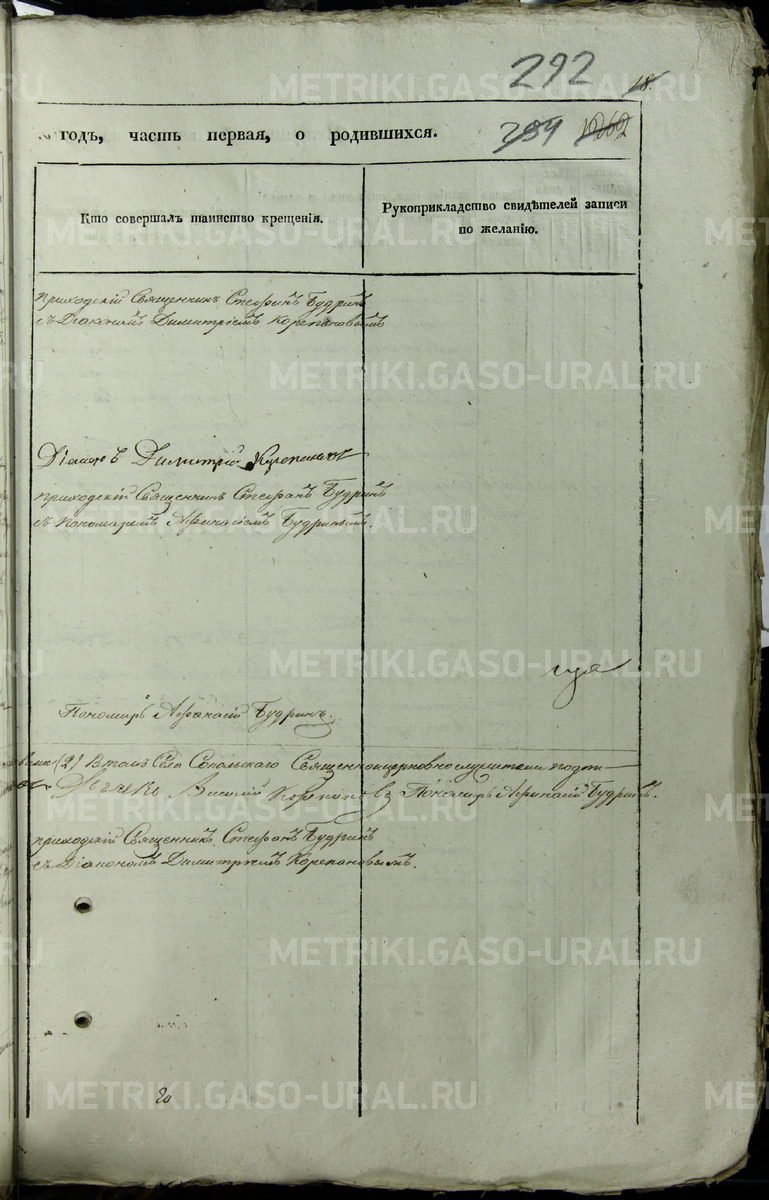 292
18.
годъ, часть первая, о родившихся.
Кто совершалъ таинство крещенія.
Рукоприкладство свидѣтелей записи
по желанію.
приходскій Священникъ Стефанъ Будринъ
съ Діакономъ Димитріемъ Корепановымъ
Діаконъ Димитрій Корепановъ
приходскій Священникъ Стефанъ Будринъ
съ Пономаремъ Афанасіемъ Будринымъ.
Пономарь Афанасій Будринъ.
(2) въ томъ Села Священноцерковнослужители подпи
Василій Корепановъ Пономарь Афанасій Будринъ.
приходскій Священникъ Стефанъ Будринъ
съ Діакономъ Димитріемъ Корепановымъ.
METRIKI.GASO-URAL.RU